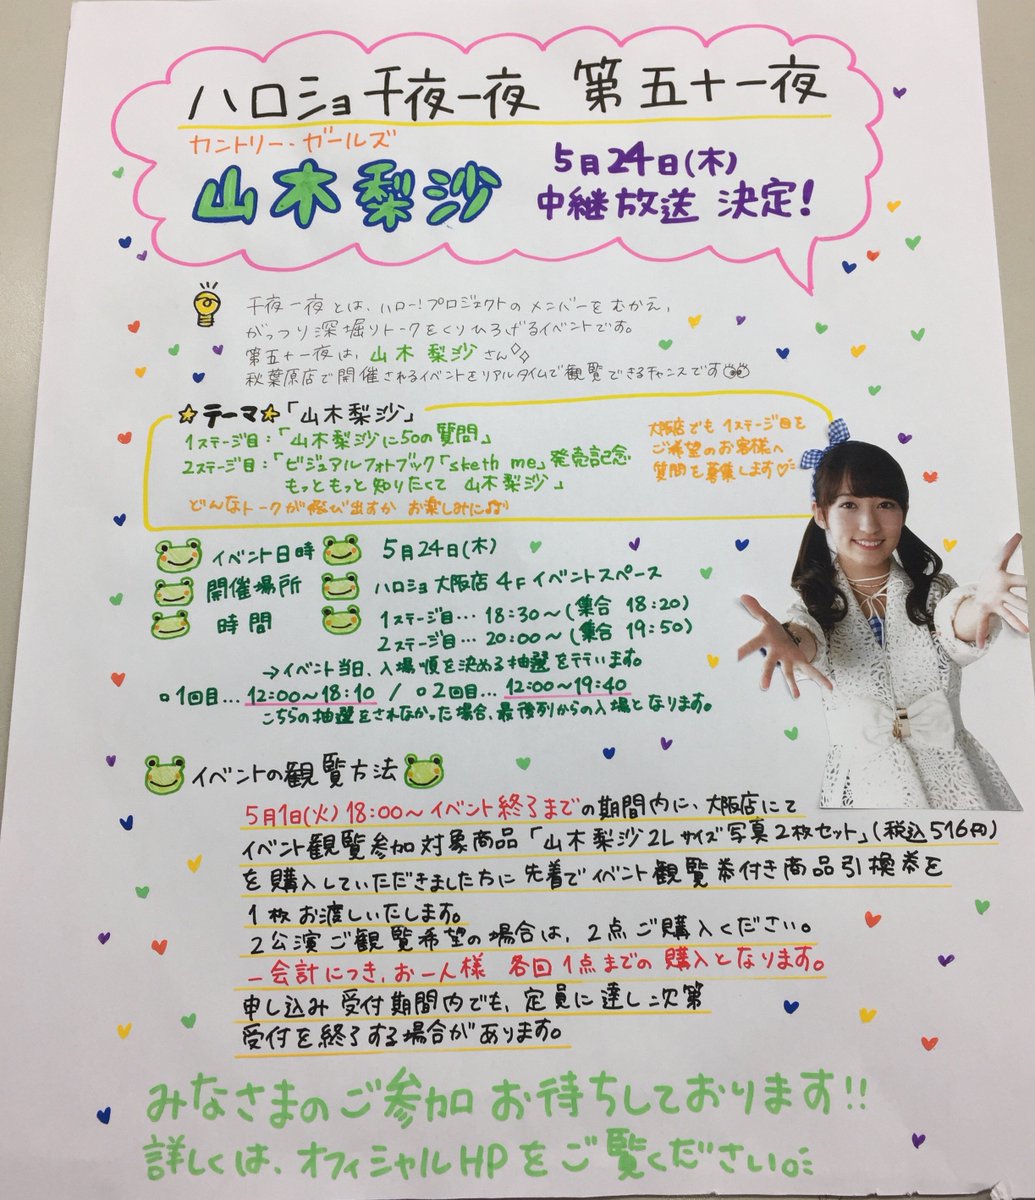 ハロショ千夜一夜 第五十一夜
カントリー・ガールズ
山木梨沙
5月24日(木)
中継放送 決定!
千夜一夜とは、ハロー!プロジェクトのメンバーをむかえ、
がっつり深堀りトークをくりひろげるイベントです。
第五十一夜は、山木 梨沙さん
秋葉原店で開催されるイベントをリアルタイムで観覧できるチャンスです
☆テーマ☆「山木梨沙」
1ステージ目:「山木梨沙に50の質問」
2ステージ目:「ビジュアルフォトブック「sketh me」発売記念
もっともっと知りたくて 山木梨沙」
どんなトークが飛び出すか お楽しみに♫
大阪店でも 1ステージ目を
ご希望のお客様へ
質問を募集します♡
イベント日時 5月24日(木)
開催場所 ハロショ大阪店 4F イベントスペース
時間 1ステージ目…18:30〜(集合 18:20)
2ステージ目…20:00〜(集合 19:50)
→イベント当日、入場順を決める抽選を行います。
□1回目…12:00〜18:10 / □2回目…12:00〜19:40
こちらの抽選をされなかった場合、最後列からの入場となります。
イベントの観覧方法
5月1日(火)18:00〜イベント終了までの期間内に、大阪店にて
イベント観覧参加対象商品「山木梨沙2Lサイズ写真2枚セット」(税込516円)
を購入していただきました方に先着でイベント観覧券付き商品引換券を
1枚お渡しいたします。
2公演ご観覧希望の場合は、2点ご購入ください。
一会計につき、お一人様 各回1点までの購入となります。
申し込み受付期間内でも、定員に達し次第
受付を終了する場合があります。
みなさまのご参加お待ちしております!!
詳しくは、オフィシャルHPをご覧ください。